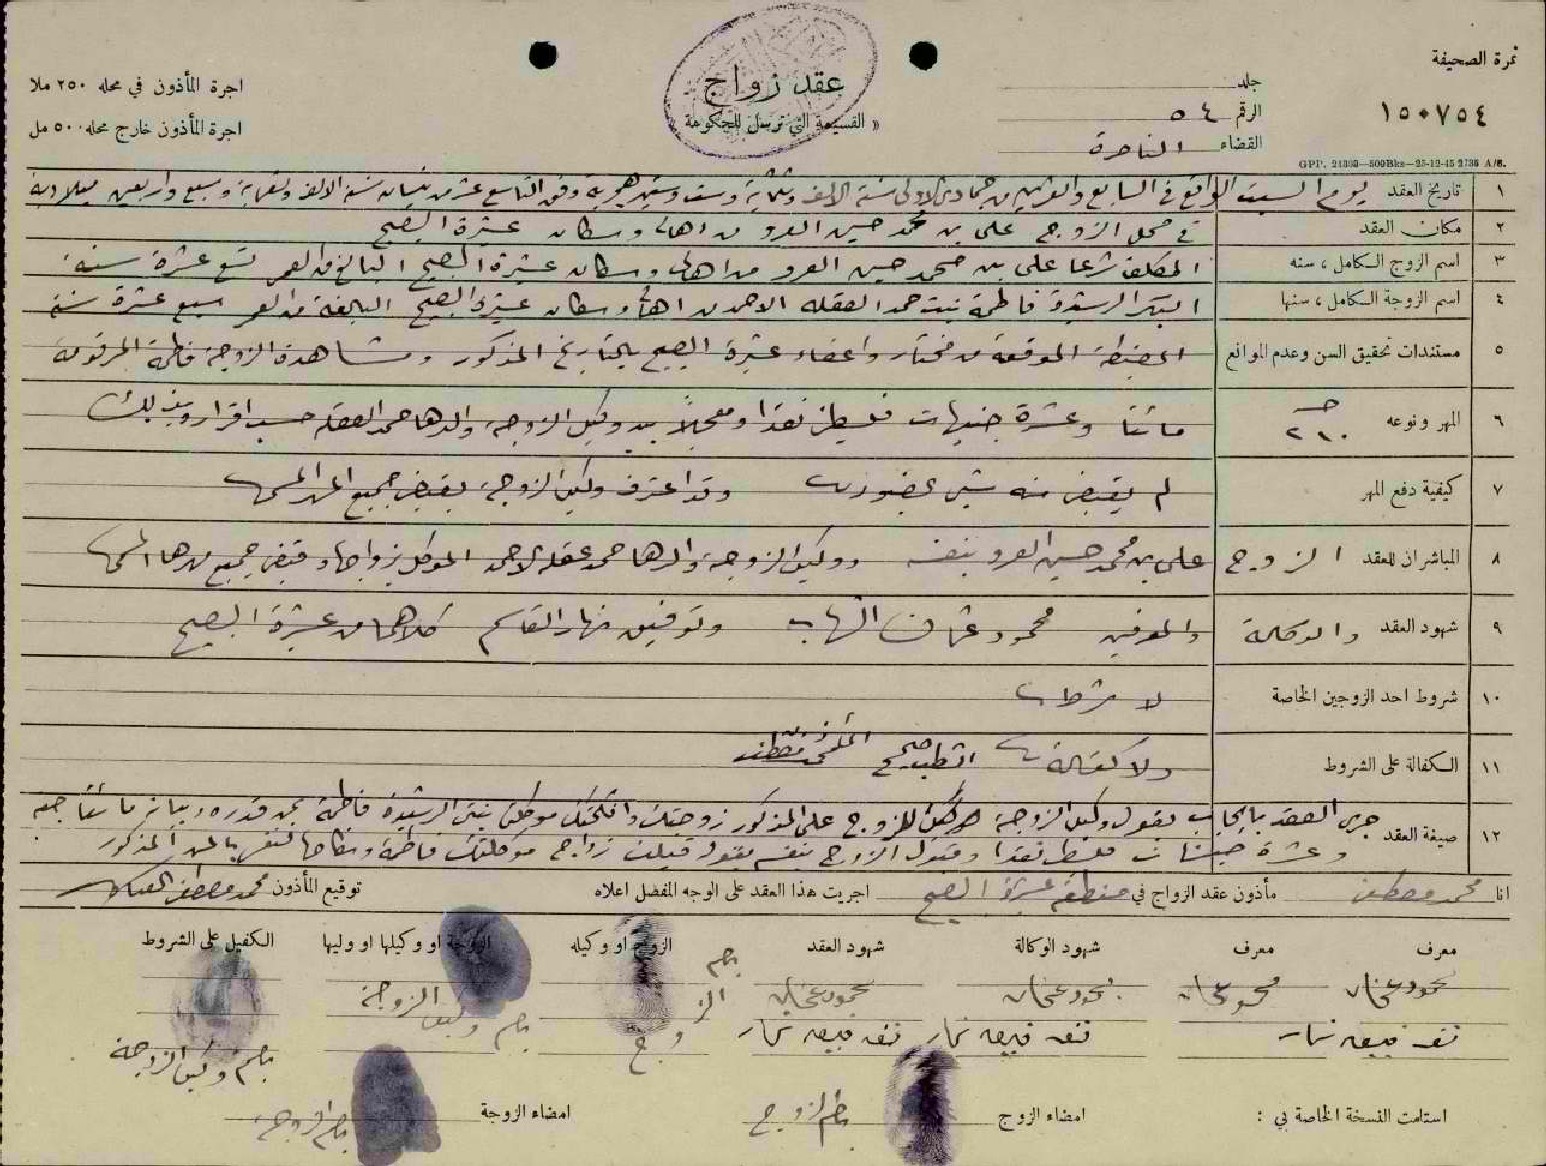 نمرة الصحيفة
١٥٠٧٥٤
جلد
الرقم ٥٤
القضاء الناصرة
عقد زواج
« القسيمة التي ترسل للحكومة »
اجرة المأذون في محله ٢٥٠ ملا
اجرة المأذون خارج محله ٥٠٠ مل
GPP. 21303—500Bks—25-12-45 2736 A/6.
١ تاريخ العقد يوم السبت الواقع في السابع والعشرين من جمادى الاولى سنة الالف وثلثماية وست وستين هجرية وفق التاسع عشر من نيسان سنة الالف وتسعماية وسبع واربعين ميلادية
٢ مكان العقد في محل الزوج علي بن محمد حسين العرو من اهالي وسكان عشيرة الصبيح
٣ اسم الزوج الكامل ، سنه المكلف شرعا علي بن محمد حسين العرو من اهالي وسكان عشيرة الصبيح البالغ من العمر تسع عشرة سنة
٤ اسم الزوجة الكامل ، سنها البكر الرشيدة فاطمة بنت حمد العقله الاحمد من اهالي وسكان عشيرة الصبيح البالغة من العمر سبع عشرة سنة
٥ مستندات تحقيق السن وعدم الموانع المضبطة الموقعة من مختار واعضاء عشيرة الصبيح بالتاريخ المذكور ومشاهدة الزوجة فاطمة المرقومة
٦ المهر ونوعه ٢١٠ مائتا وعشرة جنيهات فلسطينية نقدا ومعجلاً بيد وكيل الزوجة والدها حمد العقله حسب اقراره بذلك
٧ كيفية دفع المهر لم يقبض منه شيء بحضوري وقد اعترف وكيل الزوجة بقبض جميع المهر المسمى
٨ المباشران للعقد الزوج علي بن محمد حسين العرو بنفسه ووكيل الزوجة والدها حمد عقله الاحمد الموكل بزواجها وقبض جميع مهرها المسمى
٩ شهود العقد والوكالة والمعرفين محمود عثمان الشهاب وتوفيق نهار القاسم كلاهما من عشيرة الصبيح
١٠ شروط احد الزوجين الخاصة لا شرط
١١ الكفالة على الشروط ولا كفالة
١٢ صيغة العقد جرى العقد بايجاب بقول وكيل الزوجة للزوج علي المذكور زوجتك وانكحتك موكلتي بنتي الرشيدة فاطمة بمهر قدره وبيانه مائتا جنيه
وعشرة جنيهات فلسطينية نقدا وقبول الزوج بنفسه بقوله قبلت زواج موكلتك فاطمة ونكاحها لنفسي بالمهر المذكور
انا محمد مصطفى مأذون عقد الزواج في منطقة عشيرة الصبيح اجريت هذا العقد على الوجه المفصل اعلاه توقيع المأذون محمد مصطفى
معرف معرف شهود الوكالة شهود العقد الزوج او وكيله الزوجة او وكيلها او وليها الكفيل على الشروط
محمود عثمان محمود عثمان محمود عثمان محمود عثمان بصم الزوج
بصم وكيل الزوجة
بصم وكيل الزوجة
استلمت النسخة الخاصة بي : امضاء الزوج بصم الزوج امضاء الزوجة بصم الزوجة